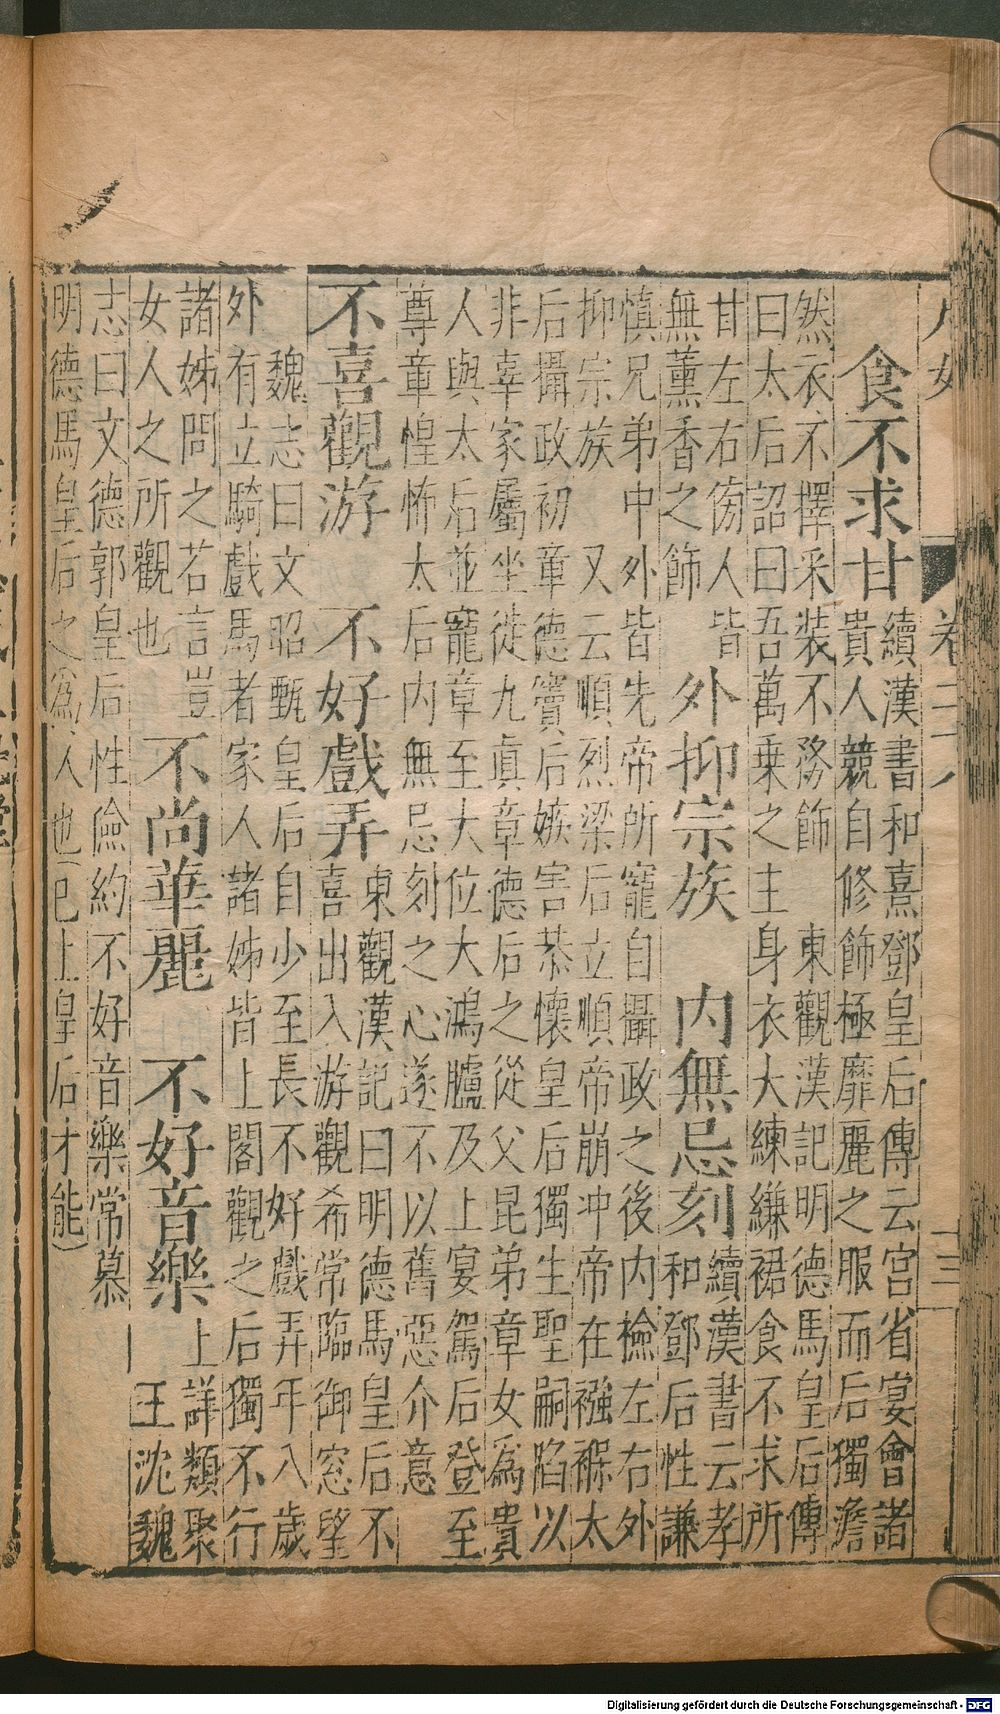 卷二十八
十三
食不求甘
續漢書和熹鄧皇后傳云宮省宴會諸
貴人競自修飾極靡麗之服而后獨澹
然衣不擇采裝不務飾 東觀漢記明德馬皇后傳
曰太后詔曰吾萬乗之主身衣大練縑裙食不求所
甘左右傍人皆
無薰香之飾
外抑宗族 內無忌刻
續漢書云孝
和鄧后性謙
慎兄弟中外皆先帝所寵自攝政之後內檢左右外
抑宗族 又云順烈梁后立順帝崩冲帝在襁褓太
后攝政初章德竇后嫉害恭懷皇后獨生聖嗣陷以
非辜家屬坐徙九眞章德后之從父昆弟章女爲貴
人與太后並寵章至大位大鴻臚及上宴駕后登至
尊章惶怖太后內無忌刻之心遂不以舊惡介意
不喜觀游 不好戲弄
東觀漢記曰明德馬皇后不
喜出入游觀希常臨御窓望
魏志曰文昭甄皇后自少至長不好戲弄年八歲
外有立騎戲馬者家人諸姊皆上閣觀之后獨不行
諸姊問之若言豈
女人之所觀也
不尚華麗 不好音樂
上詳類聚
王沈魏
志曰文德郭皇后性儉約不好音樂常慕
明德馬皇后之爲人也(已上皇后才能)
Digitalisierung gefördert durch die Deutsche Forschungsgemeinschaft - DFG